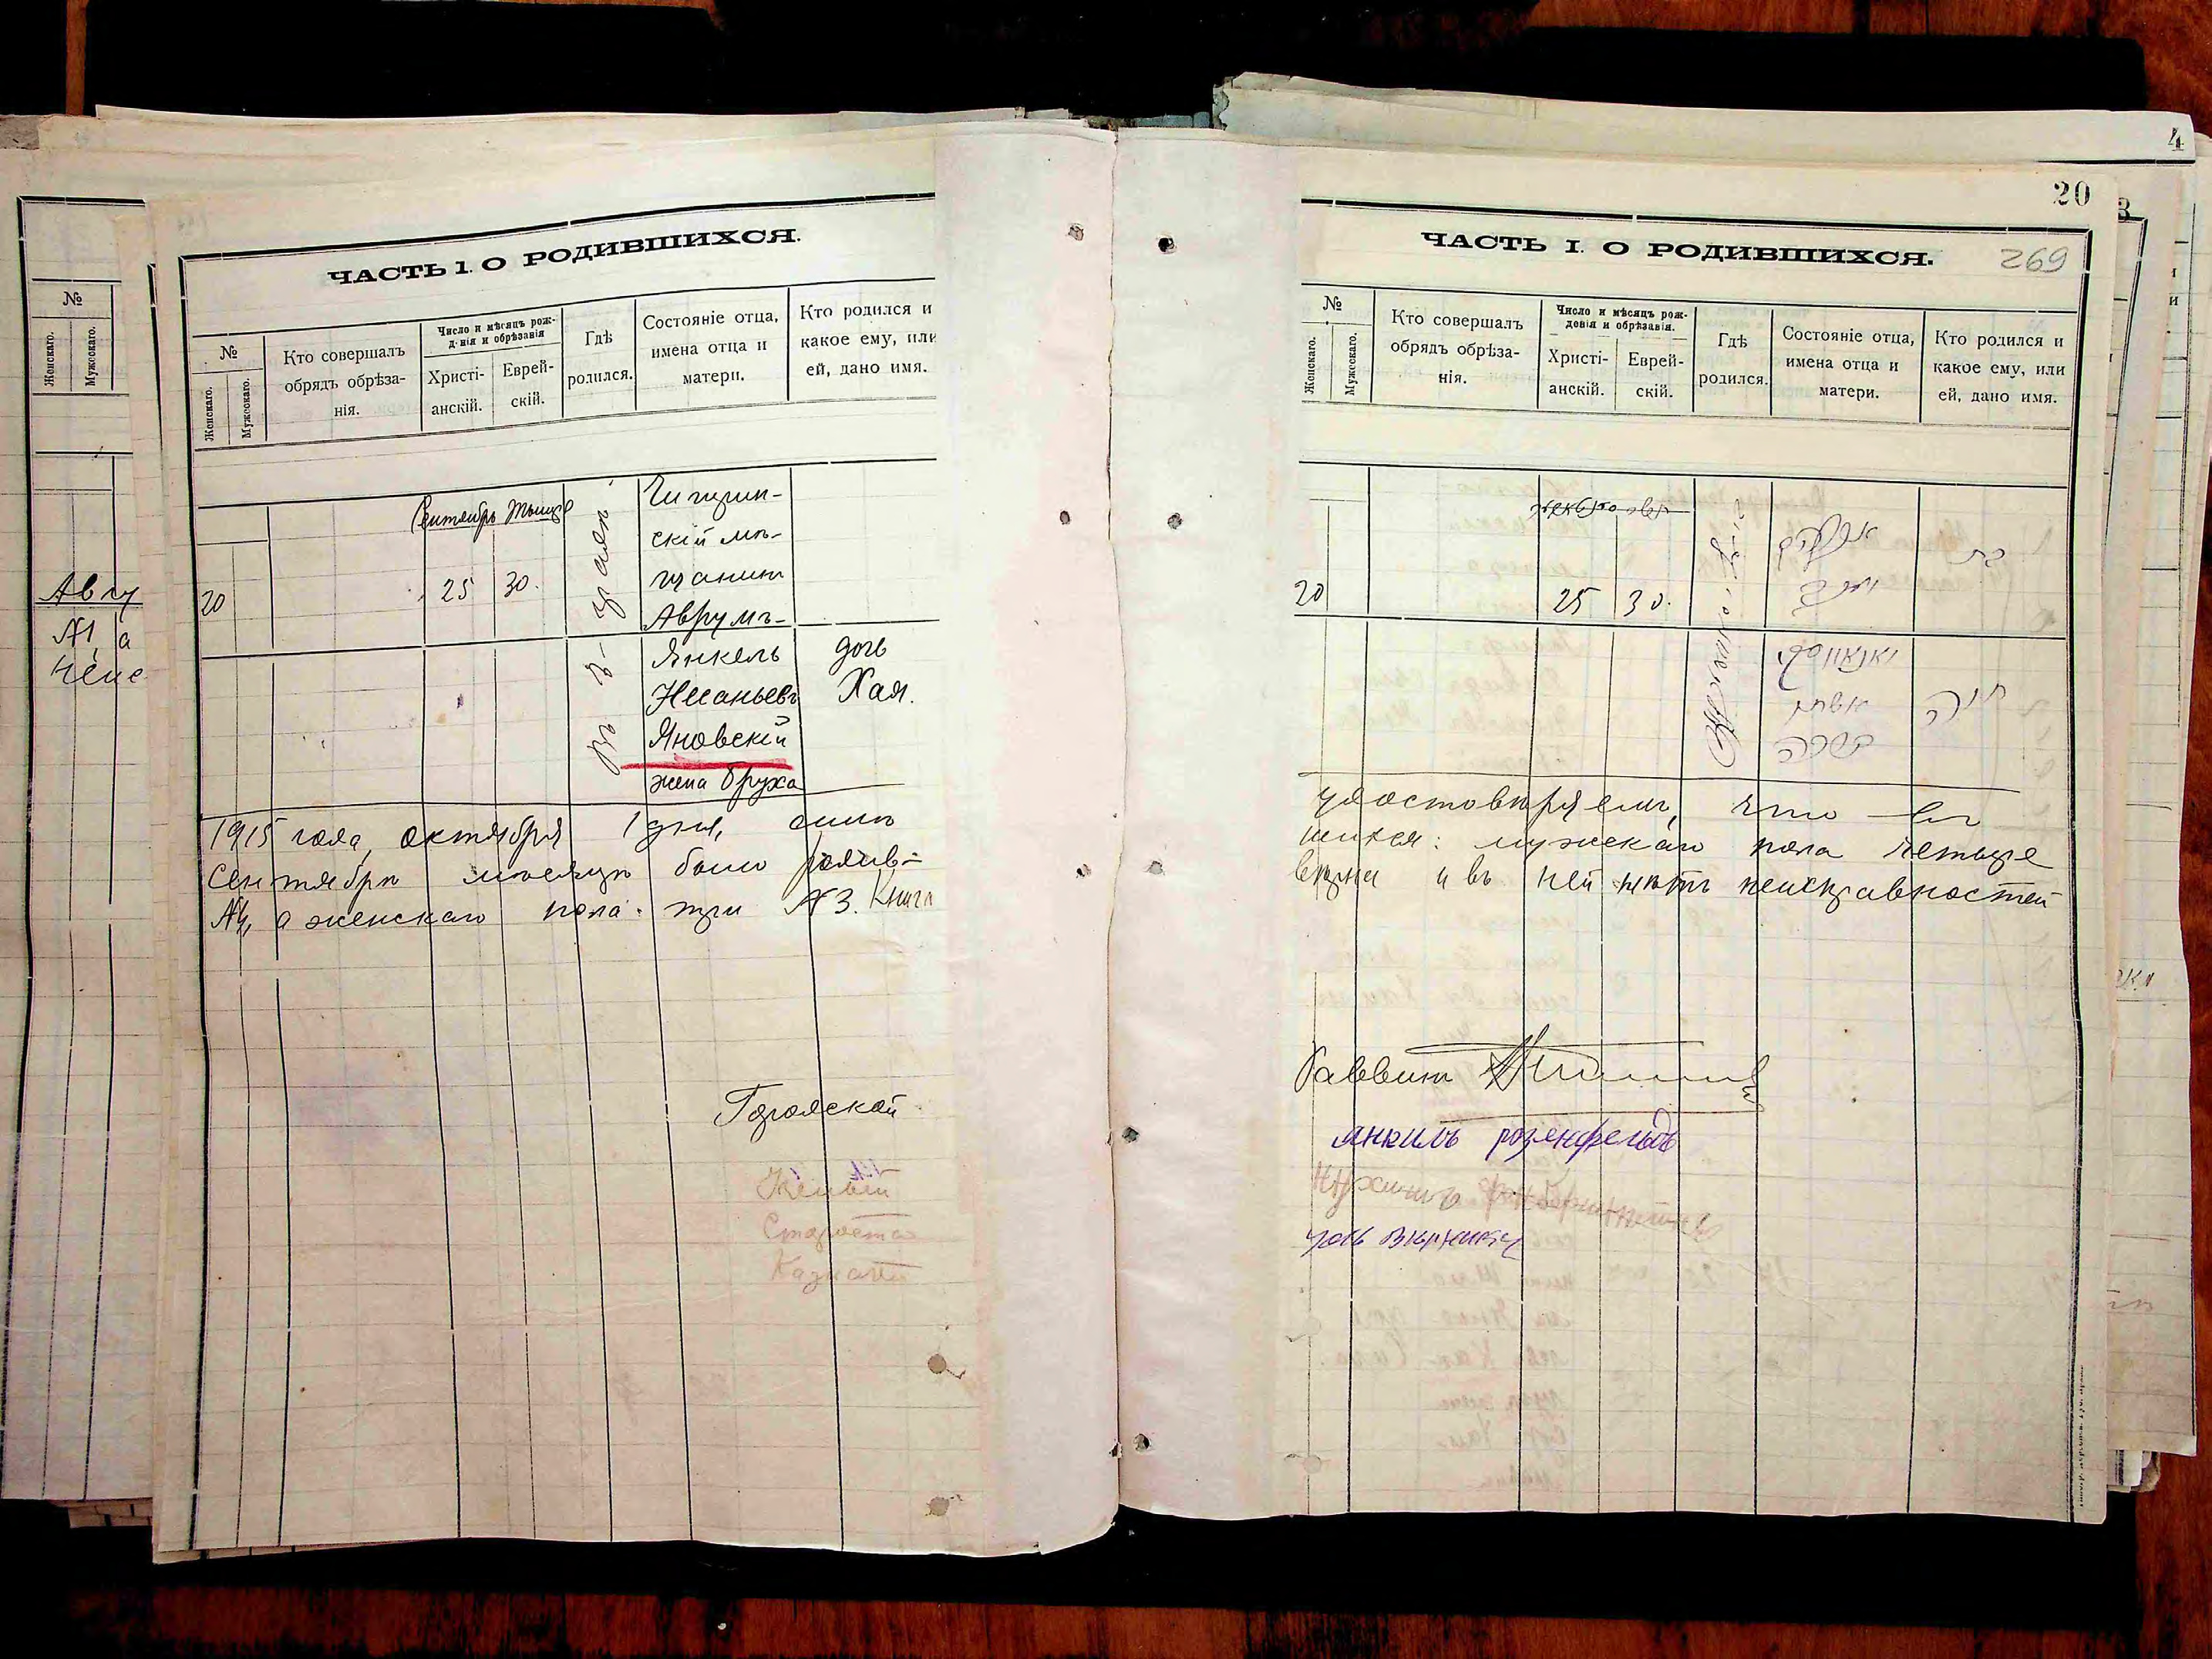 4
20
269
№
Женскаго.
Мужескаго.
Авгу
№1, а
ЧАСТЬ 1. О РОДИВШИХСЯ.
№
Женскаго.
Мужескаго.
Кто совершалъ
обрядъ обрѣза-
нія.
Число и мѣсяцъ рож-
д нія и обрѣзанія
Христі-
анскій.
Еврей-
скій.
Гдѣ
родился.
Состояніе отца,
имена отца и
матери.
Кто родился и
какое ему, или
ей, дано имя.
Сентябрь Тышре
20
25
30.
Чигирин-
скій мѣ-
щанинъ
Аврумъ-
Янкель
Несаньевъ
Яновскій
жена Бруха
дочь
Хая.
1915 года, октября 1 дня, симъ
Сентябрѣ мѣсяцѣ было родив-
№4, а женскаго пола: три №3. Книга
Городской
Староста
Казначей
ЧАСТЬ I. О РОДИВШИХСЯ.
№
Женскаго.
Мужескаго.
Кто совершалъ
обрядъ обрѣза-
нія.
Число и мѣсяцъ рож-
денія и обрѣзанія.
Христі-
анскій.
Еврей-
скій.
Гдѣ
родился.
Состояніе отца,
имена отца и
матери.
Кто родился и
какое ему, или
ей, дано имя.
20
25
30.
בת
חיה
удостовѣряемъ, что въ
шихся: мужескаго пола четыре
вѣрна и въ ней нѣтъ неисправностей
Раввинъ
янкиль розенфельдъ